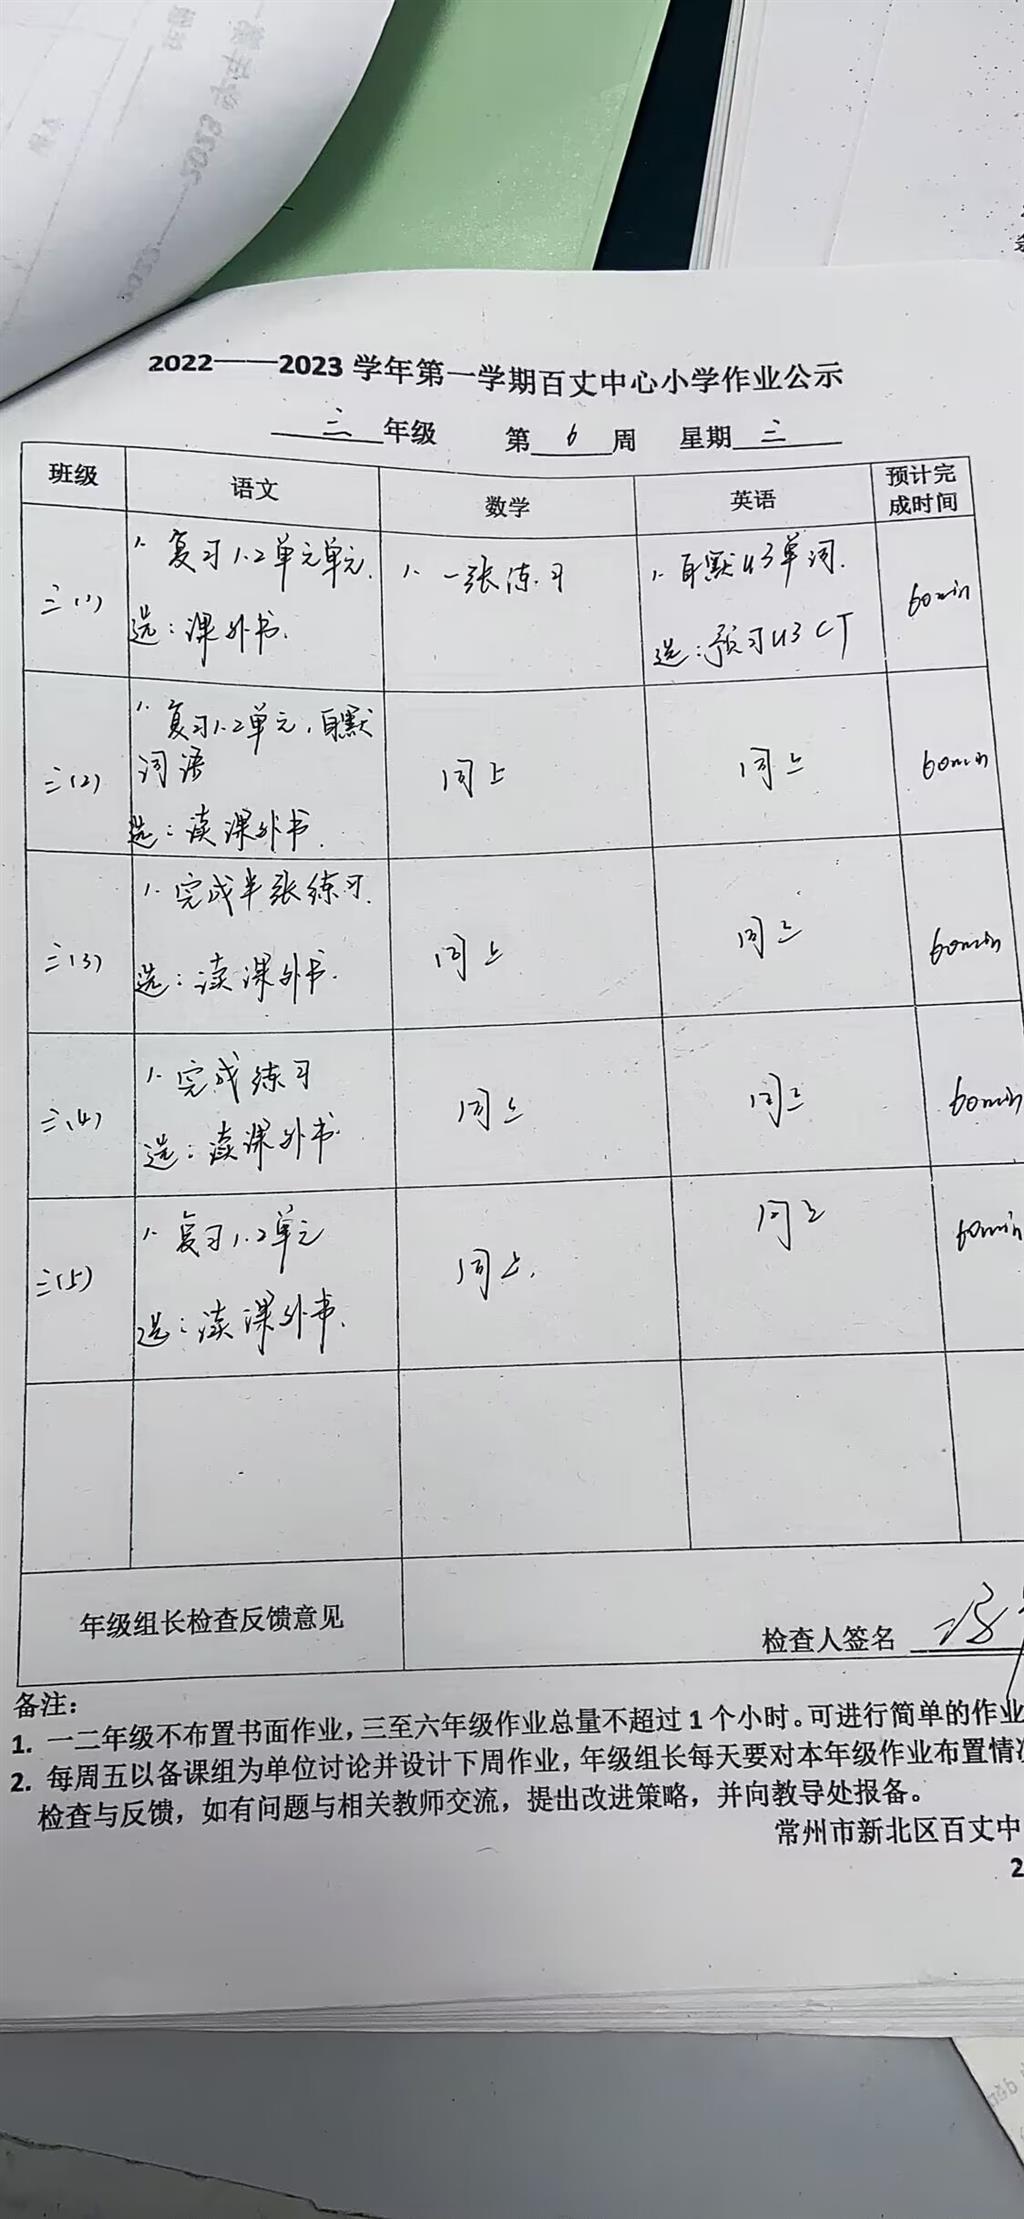 2022——2023学年第一学期百丈中心小学作业公示
三年级 第6周 星期三
班级 语文 数学 英语 预计完成时间
三(1)
1. 复习1.2单元单元.
选：课外书.
1. 一张练习
1. 自默U3单词.
选：预习U3 CT
60min
三(2)
1. 复习1.2单元，自默
词语
选：读课外书.
同上
同上
60min
三(3)
1. 完成半张练习.
选：读课外书.
同上
同上
60min
三(4)
1. 完成练习
选：读课外书.
同上
同上
60min
三(5)
1. 复习1.2单元
选：读课外书.
同上.
同上
60min
年级组长检查反馈意见
检查人签名
备注：
1. 一二年级不布置书面作业，三至六年级作业总量不超过1个小时。可进行简单的作业
2. 每周五以备课组为单位讨论并设计下周作业，年级组长每天要对本年级作业布置情
检查与反馈，如有问题与相关教师交流，提出改进策略，并向教导处报备。
常州市新北区百丈中
2